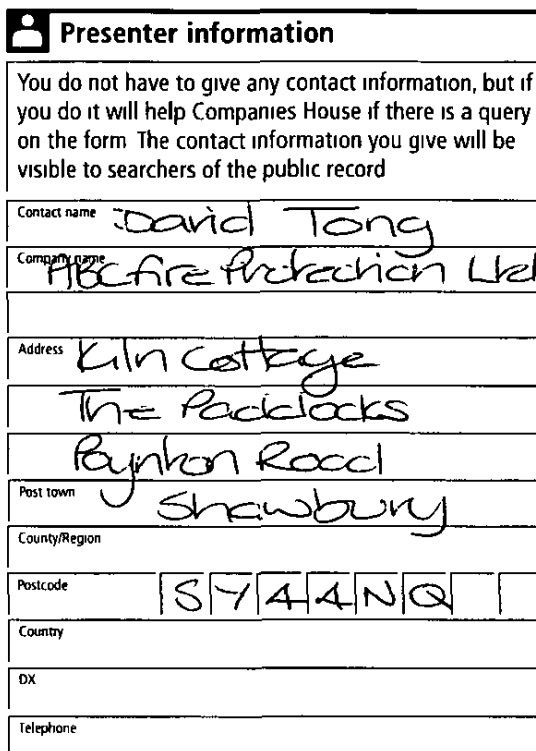 Presenter information
You do not have to give any contact information, but if
you do it will help Companies House if there is a query
on the form The contact information you give will be
visible to searchers of the public record
Contact name David Tong
Company name ABC Fire Protection Ltd
Address Kiln Cottage
The Paddocks
Poynton Road
Post town Shawbury
County/Region
Postcode SY44NQ
Country
DX
Telephone